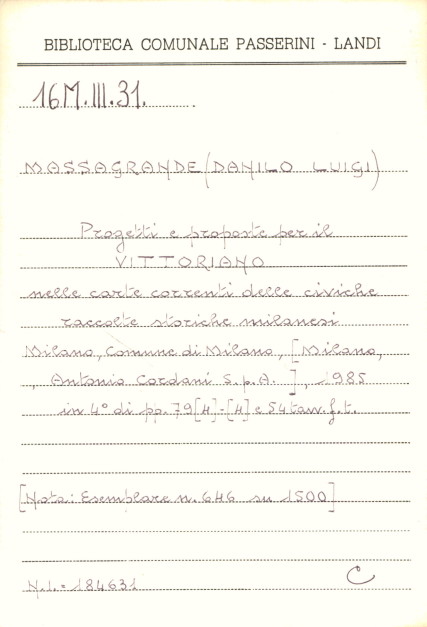 BIBLIOTECA COMUNALE PASSERINI - LANDI
16M.III.31.
MASSAGRANDE (DANILO LUIGI)
Progetti e proposte per il
VITTORIANO
nelle carte correnti delle civiche
raccolte storiche milanesi
Milano, Comune di Milano, [Milano,
, Antonio Cordani S.p.A. ], 1985
in 4° di pp. 79[4]-[4] e 54 tavv. f.t.
[Nota: Esemplare n. 646 su 1500]
N.I. = 184631
C